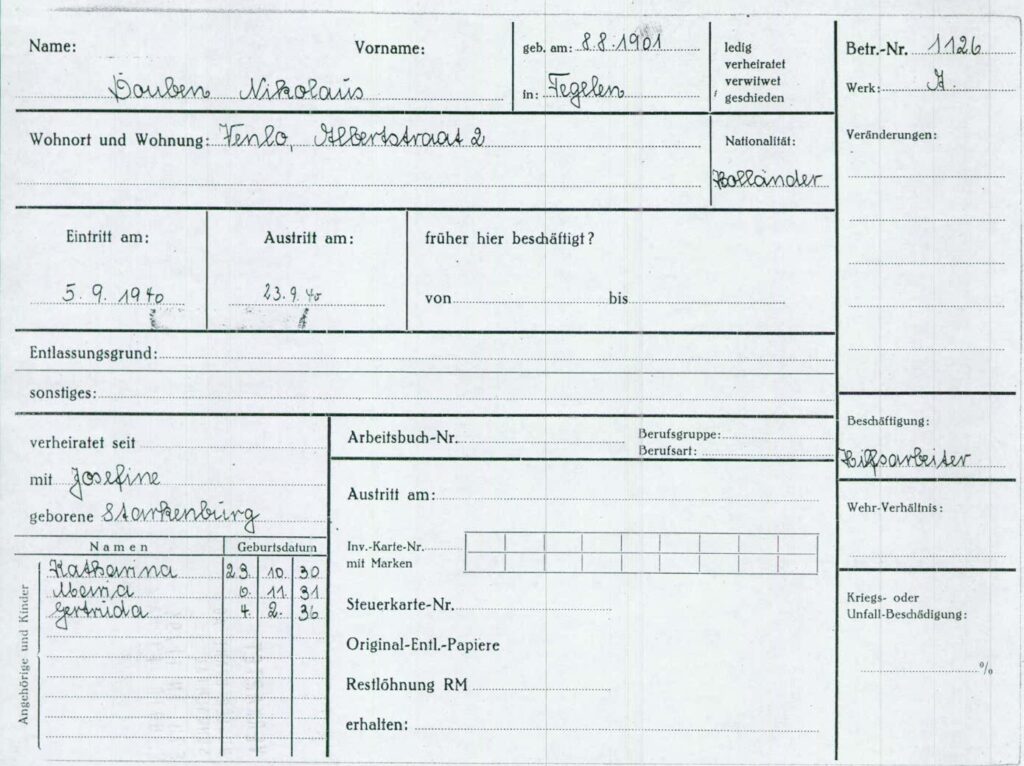 Name: Vorname: geb. am: 8.8.1901 ledig Betr.-Nr. 1126
verheiratet
verwitwet
Douben Nikolaus in: Tegelen geschieden Werk:
Wohnort und Wohnung: Venlo, Albertstraat 2 Nationalität: Veränderungen:
Holländer
Eintritt am: Austritt am: früher hier beschäftigt?
5. 9. 1940 23. 9. 40 von bis
Entlassungsgrund:
sonstiges:
verheiratet seit Arbeitsbuch-Nr. Berufsgruppe: Beschäftigung:
Berufsart: Hilfsarbeiter
mit Josefine
geborene Starkenburg
Austritt am: Wehr-Verhältnis:
Namen Geburtsdatum
Angehörige und Kinder
Katharina 23. 10. 30
Maria 11. 31
Gertruda 4. 2. 36
Inv.-Karte-Nr.
mit Marken
Steuerkarte-Nr. Kriegs- oder
Unfall-Beschädigung:
Original-Entl.-Papiere
%
Restlöhnung RM
erhalten: